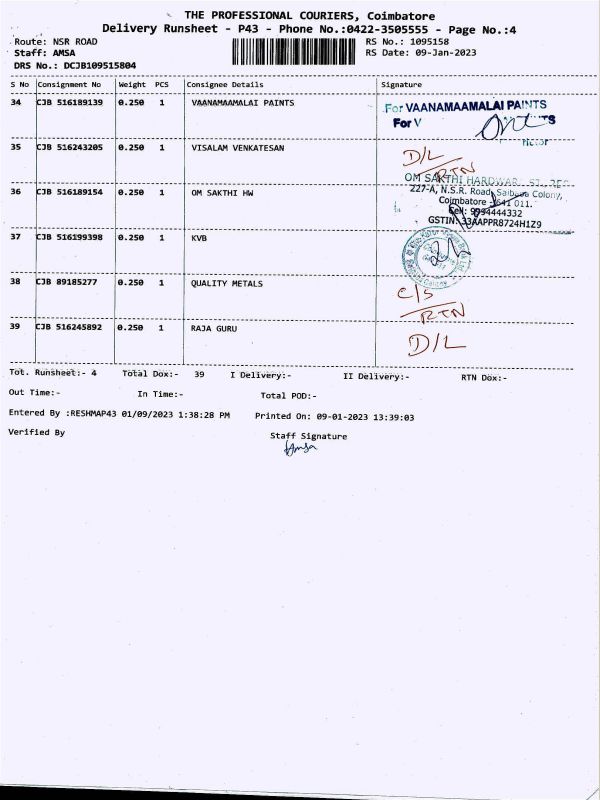 THE PROFESSIONAL COURIERS, Coimbatore
Delivery Runsheet - P43 - Phone No.:0422-3505555 - Page No.:4
Route: NSR ROAD RS No.: 1095158
Staff: AMSA RS Date: 09-Jan-2023
DRS No.: DCJB109515804
S No Consignment No Weight PCS Consignee Details Signature
34 CJB 516189139 0.250 1 VAANAMAAMALAI PAINTS
For VAANAMAAMALAI PAINTS
For V TS
35 CJB 516243205 0.250 1 VISALAM VENKATESAN
D/L
RTN
36 CJB 516189154 0.250 1 OM SAKTHI HW
OM SAKTHI HARDWAR
227-A, N.S.R. Road, Saibaba Colony,
Coimbatore - 641 011.
Cell: 9994444332
GSTIN: 33AAPPR8724H1Z9
37 CJB 516199398 0.250 1 KVB
38 CJB 89185277 0.250 1 QUALITY METALS
C/S
RTN
39 CJB 516245892 0.250 1 RAJA GURU
D/L
Tot. Runsheet:- 4 Total Dox:- 39 I Delivery:- II Delivery:- RTN Dox:-
Out Time:- In Time:- Total POD:-
Entered By :RESHMAP43 01/09/2023 1:38:28 PM Printed On: 09-01-2023 13:39:03
Verified By Staff Signature
Amsa